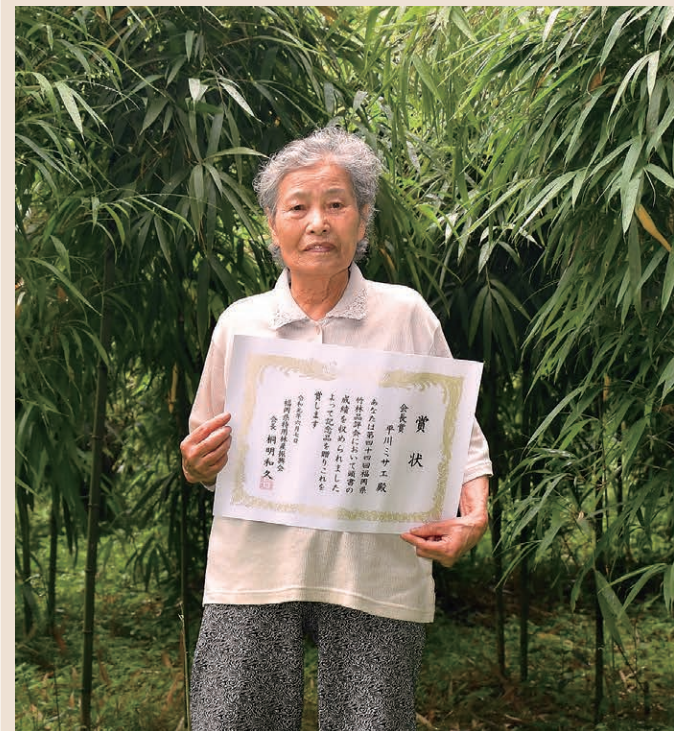 賞状
会長賞
平川ミサエ 殿
あなたは第四十四回福岡県
竹林品評会において頭書の
成績を収められました
よって記念品を贈りこれを
賞します
令和元年六月七日
福岡県特用林産振興会
会長 桐明和久